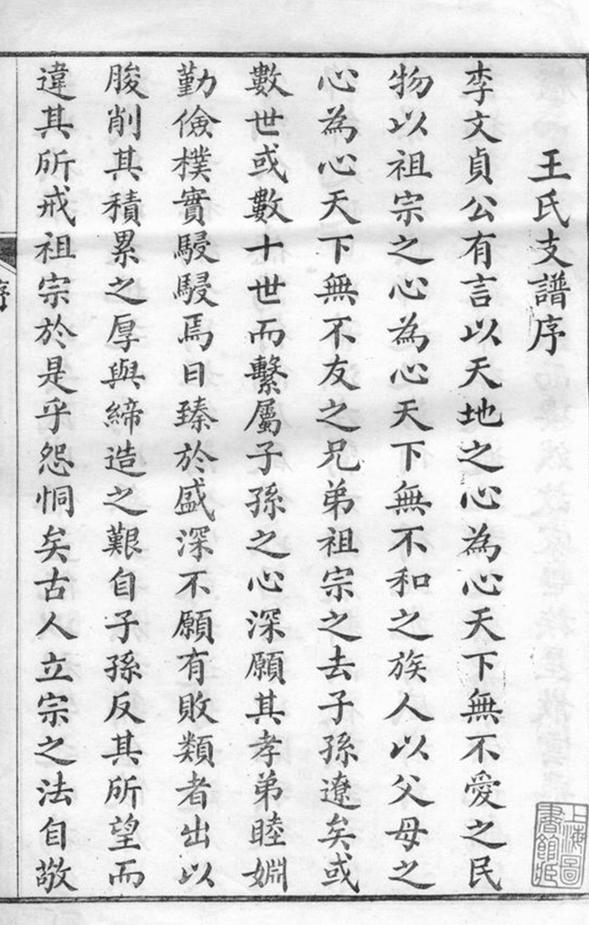 王氏支譜序
李文貞公有言以天地之心為心天下無不愛之民
物以祖宗之心為心天下無不和之族人以父母之
心為心天下無不友之兄弟祖宗之去子孫遼矣或
數世或數十世而繫屬子孫之心深願其孝弟睦婣
勤儉樸實駸駸焉日臻於盛深不願有敗類者出以
朘削其積累之厚與締造之艱自子孫反其所望而
違其所戒祖宗於是乎怨恫矣古人立宗之法自敬
序
上海圖
書館臧